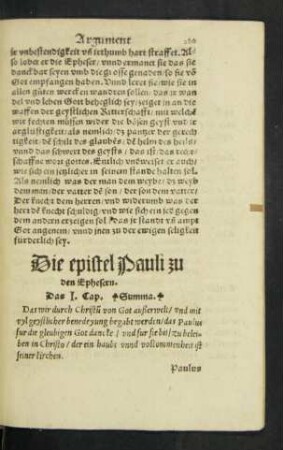 Argument
je vnbestendigkeit vñ irthumb hart straffet. Al-
so lobet er die Epheser/ vnnd ermanet sie das sie
danckbar seyen vmb die grosse genaden/ so sie võ
Got empfangen haben. Vnnd leret sie/ wie sie
in allen gůten wercken wandren sollen: das ir wan
del vnd leben Got beheglich sey/ zeiget in an die
waffen der geystlichen Ritterschafft/ mit welchẽ
wir fechten müssen wider die bösen geyst vnd ir
arglistigkeit/ als nemlich/ dz pantzer der gerech
tigkeit/ dẽ schilt des glaubẽs/ dẽ helm des heils/
vnnd das schwert des geysts/ das ist/ das recht
schaffne wort gottes. Entlich vnderweiset er auch
wie sich ein jeglicher in seinem stande halten sol.
Als nemlich was der man dem weybe/ dz weyb
dem man/ der vatter dẽ sön/ der son dem vatter
Der knecht dem herren/ vnd widerumb was der
herr dẽ knecht schuldig/ vnd wie sich ein jed gegen
dem andern erzeigen sol/ das je standt vñ ampt
Got angenem/ vnnd jnen zu der ewigen seligkeit
fürderlich sey.
Die epistel Pauli zu
den Ephesern.
Das I. Cap. Summa.
Das wir durch Christũ von Got außerwelt/ vnd mit
vyl geystlicher benedeyung begabt werden/ das Paulus
für die gleubigen Got dancke/ vnd für sie bit/ zu belei-
ben in Christo/ der ein haubt vnnd volkommenheit ist
seiner kirchen.
Paulus